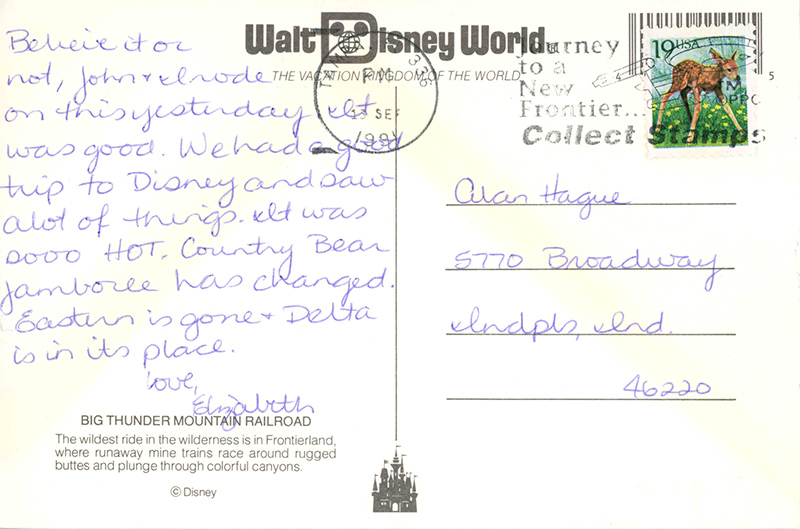 Believe it or
not, John & I rode
on this yesterday. It
was good. We had a good
trip to Disney and saw
alot of things. It was
sooo HOT. Country Bear
Jamboree has changed.
Eastern is gone & Delta
is in its place.
Love,
Elizabeth
BIG THUNDER MOUNTAIN RAILROAD
The wildest ride in the wilderness is in Frontierland,
where runaway mine trains race around rugged
buttes and plunge through colorful canyons.
© Disney
Walt Disney World
THE VACATION KINGDOM OF THE WORLD
PM
SEP
Journey
to a
New
Frontier...
Collect Stamps
19 USA
5
Alan Hague
5770 Broadway
Indpls, Ind.
46220